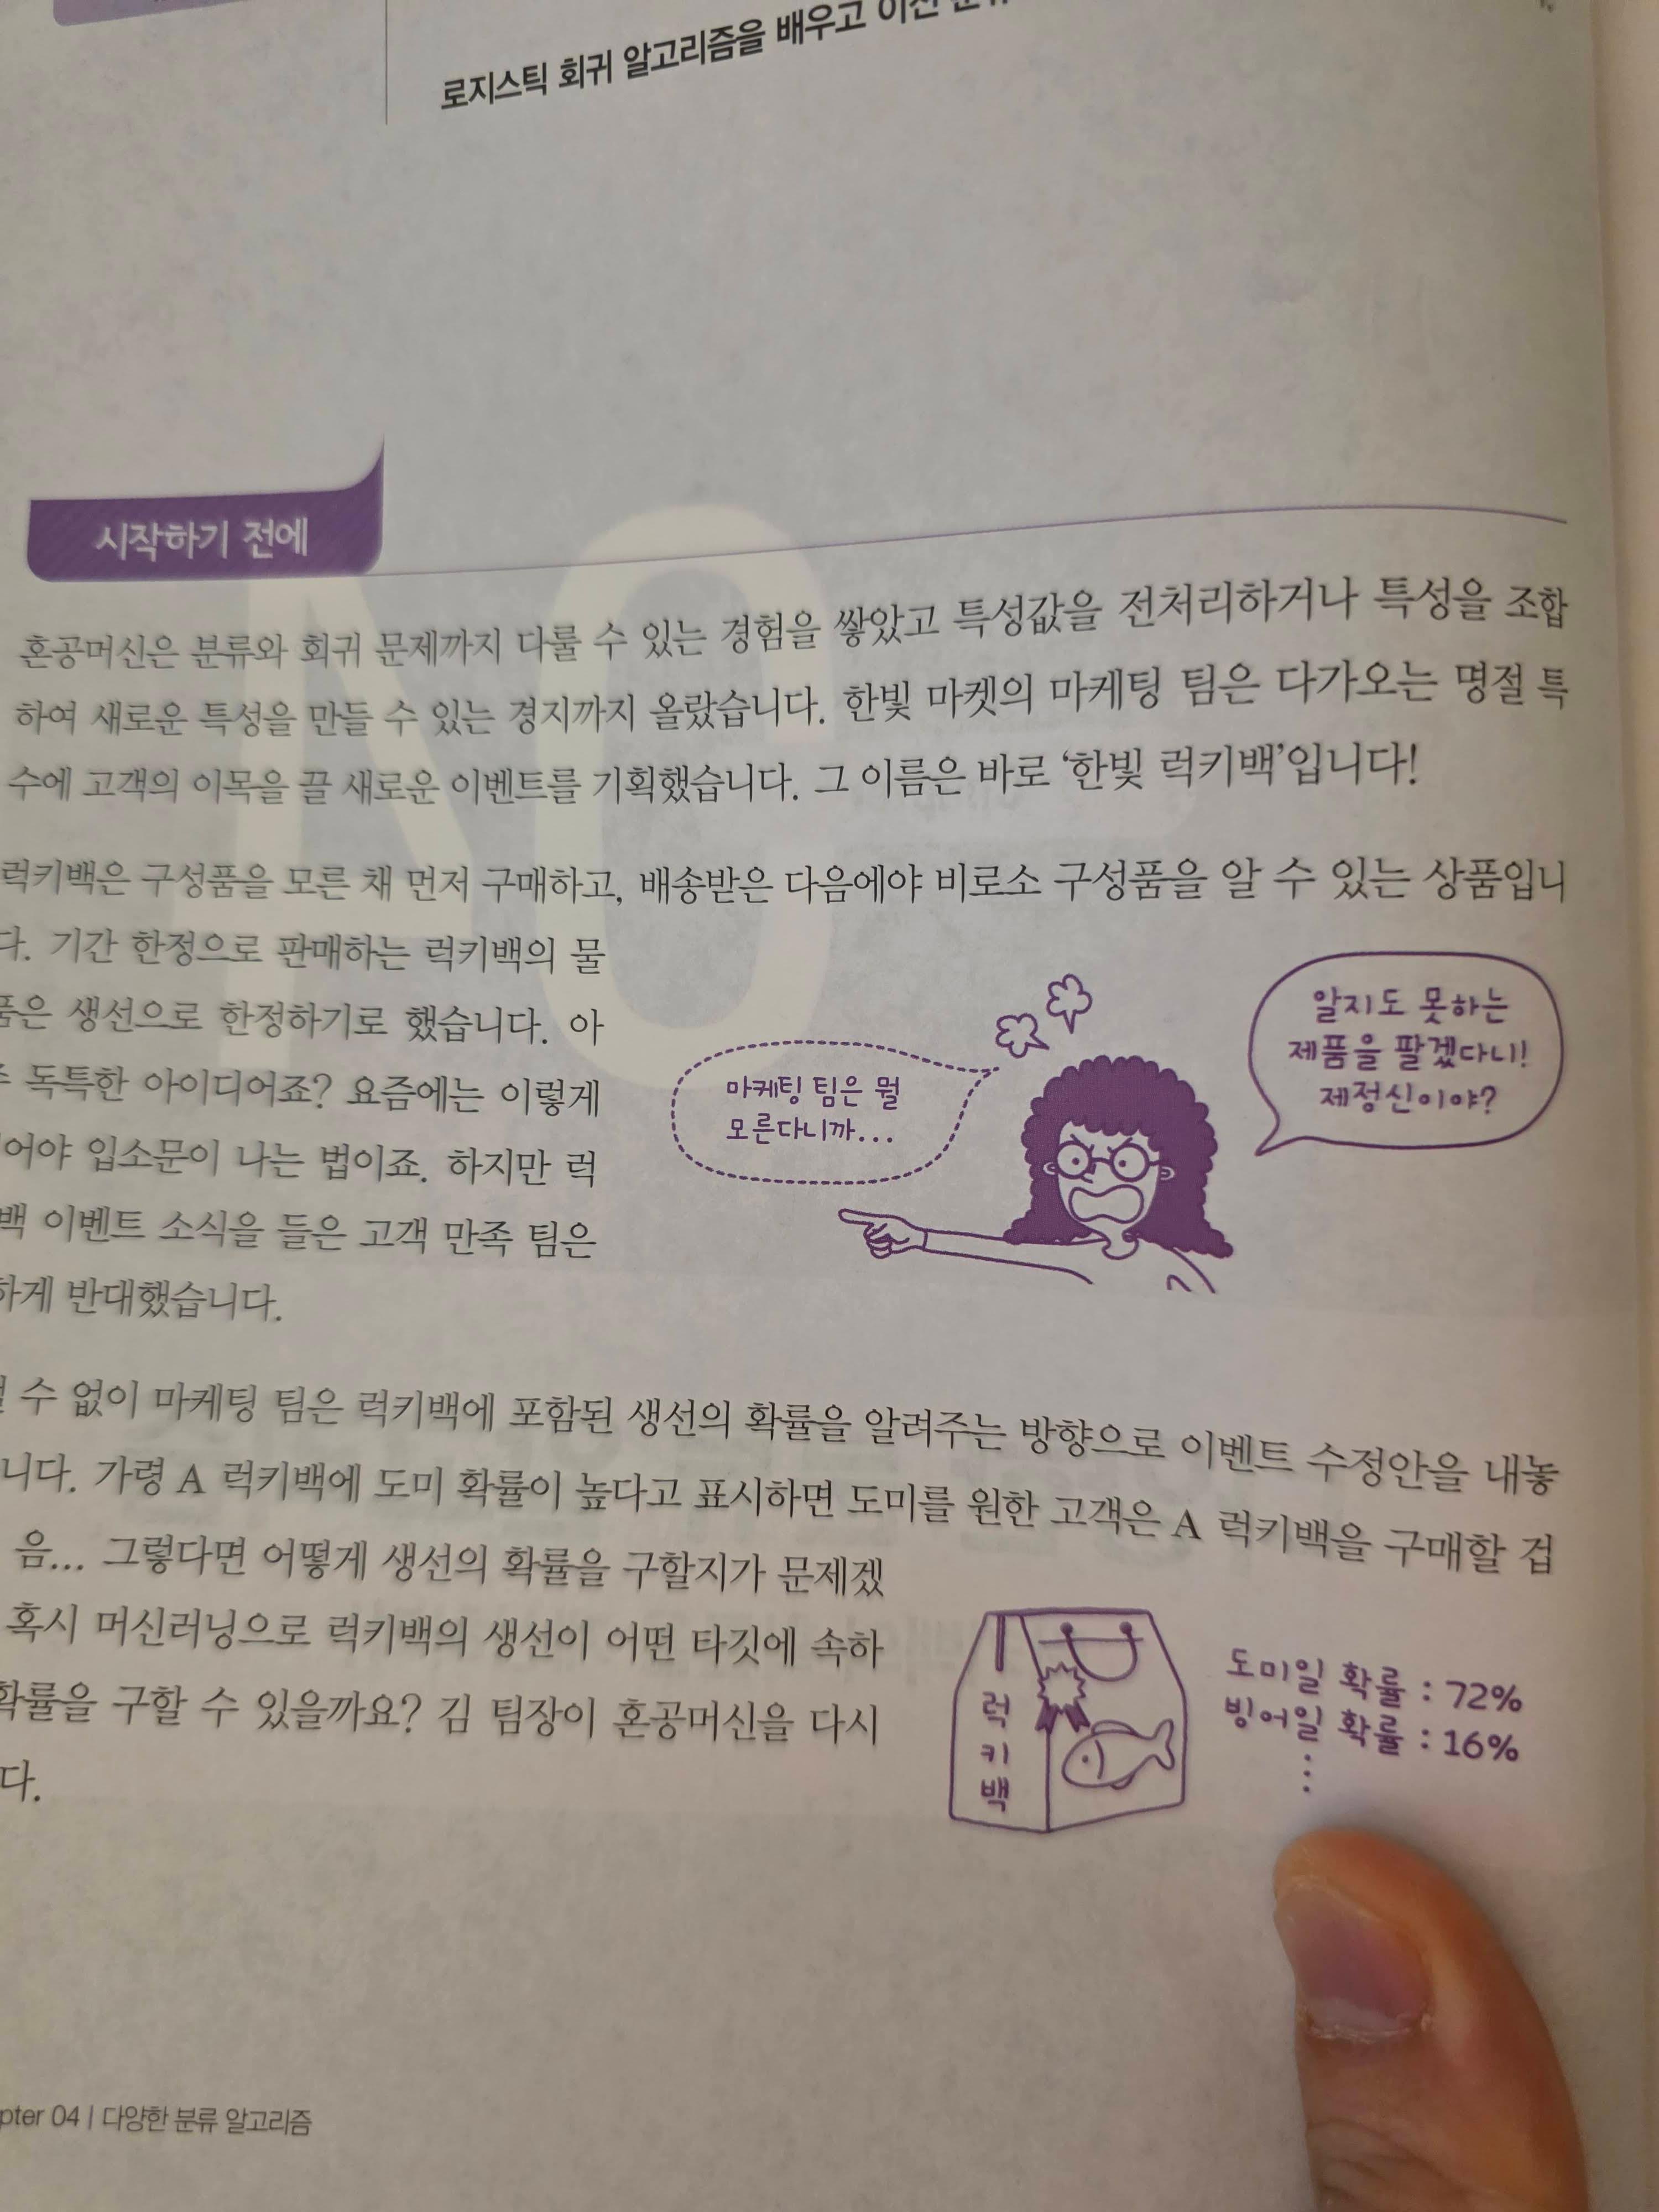 로지스틱 회귀 알고리즘을 배우고 이진
시작하기 전에
혼공머신은 분류와 회귀 문제까지 다룰 수 있는 경험을 쌓았고 특성값을 전처리하거나 특성을 조합
하여 새로운 특성을 만들 수 있는 경지까지 올랐습니다. 한빛 마켓의 마케팅 팀은 다가오는 명절 특
수에 고객의 이목을 끌 새로운 이벤트를 기획했습니다. 그 이름은 바로 ‘한빛 럭키백’입니다!
럭키백은 구성품을 모른 채 먼저 구매하고, 배송받은 다음에야 비로소 구성품을 알 수 있는 상품입니
다. 기간 한정으로 판매하는 럭키백의 물
품은 생선으로 한정하기로 했습니다. 아
독특한 아이디어죠? 요즘에는 이렇게
어야 입소문이 나는 법이죠. 하지만 럭
백 이벤트 소식을 들은 고객 만족 팀은
하게 반대했습니다.
마케팅 팀은 뭘
모른다니까...
알지도 못하는
제품을 팔겠다니!
제정신이야?
수 없이 마케팅 팀은 럭키백에 포함된 생선의 확률을 알려주는 방향으로 이벤트 수정안을 내놓
니다. 가령 A 럭키백에 도미 확률이 높다고 표시하면 도미를 원한 고객은 A 럭키백을 구매할 겁
음... 그렇다면 어떻게 생선의 확률을 구할지가 문제겠
혹시 머신러닝으로 럭키백의 생선이 어떤 타깃에 속하
확률을 구할 수 있을까요? 김 팀장이 혼공머신을 다시
다.
럭키백
도미일 확률 : 72%
빙어일 확률 : 16%
⋮
pter 04 | 다양한 분류 알고리즘